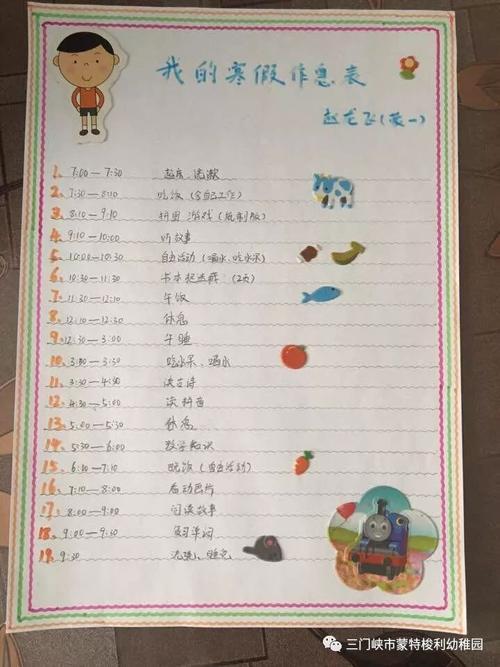 我的寒假作息表
赵龙飞(蒙一)
1. 7:00—7:30 起床 洗漱
2. 7:30—8:10 吃饭(含自己工作)
3. 8:10—9:10 拼图 游戏(
4. 9:10—10:00 听故事
5. 10:00—10:30 自由活动(喝水、吃水果)
6. 10:30—11:30 (2页)
7. 11:30—12:10 午饭
8. 12:10—12:30 休息
9. 12:30—3:00 午睡
10. 3:00—3:30 吃水果、喝水
11. 3:30—4:30 读古诗
12. 4:30—5:00 读拼音
13. 5:00—5:30 休息
14. 5:30—6:00 数学知识
15. 6:10—7:10 晚饭(自由活动)
16. 7:10—8:00 看动画片
17. 8:00—9:00 阅读故事
18. 9:00—9:30 复习单词
19. 9:30 洗漱、睡觉
三门峡市蒙特梭利幼稚园